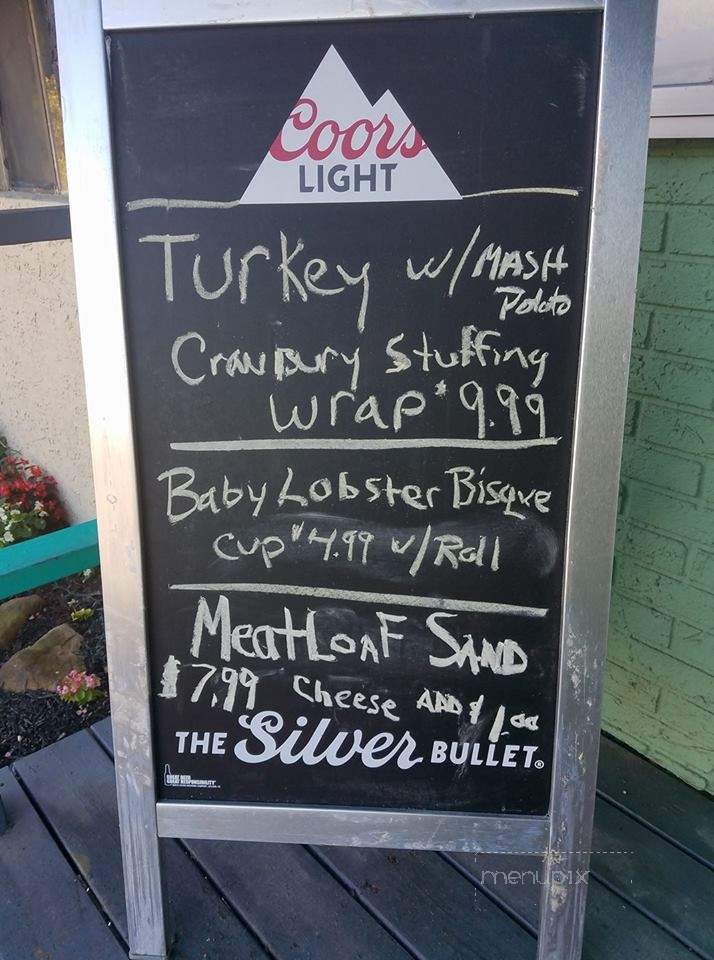 Coors
LIGHT
Turkey w/ MASH
Potato
Cranbury Stuffing
wrap $9.99
Baby Lobster Bisque
Cup $4.99 w/ Roll
MeatLoaF SAND
$7.99 Cheese ADD $1.00
THE Silver BULLET®
GREAT BEER
GREAT RESPONSIBILITY
menupix